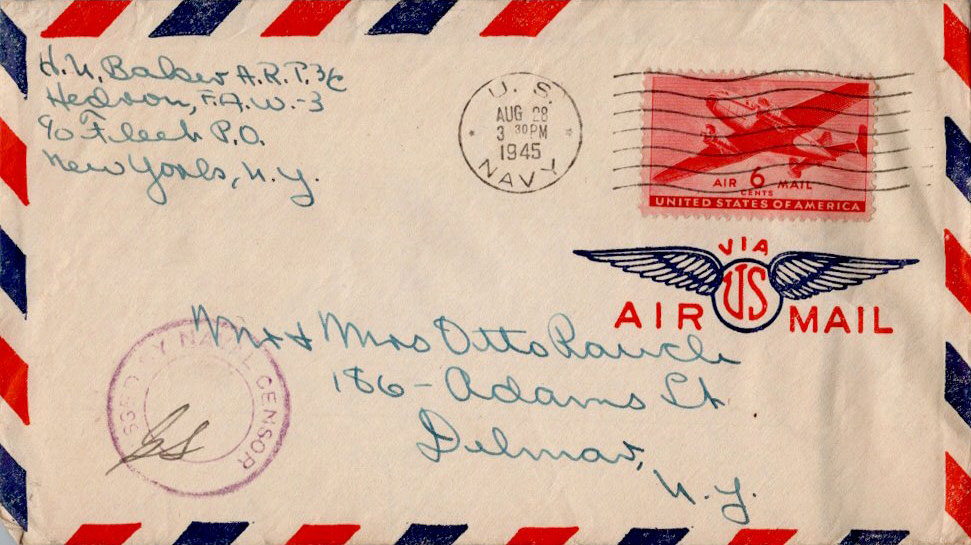 H.N. Baker A.R.T. 3/c
Hedron, F.A.W.-3
c/o Fleet P.O.
New York, N.Y.
U. S.
AUG 28
3 30 PM
1945
NAVY
AIR 6 MAIL
CENTS
UNITED STATES OF AMERICA
VIA
US
AIR MAIL
Mr & Mrs Otto Rauch
186 - Adams St
Delmar,
N.Y.
PASSED BY NAVAL CENSOR